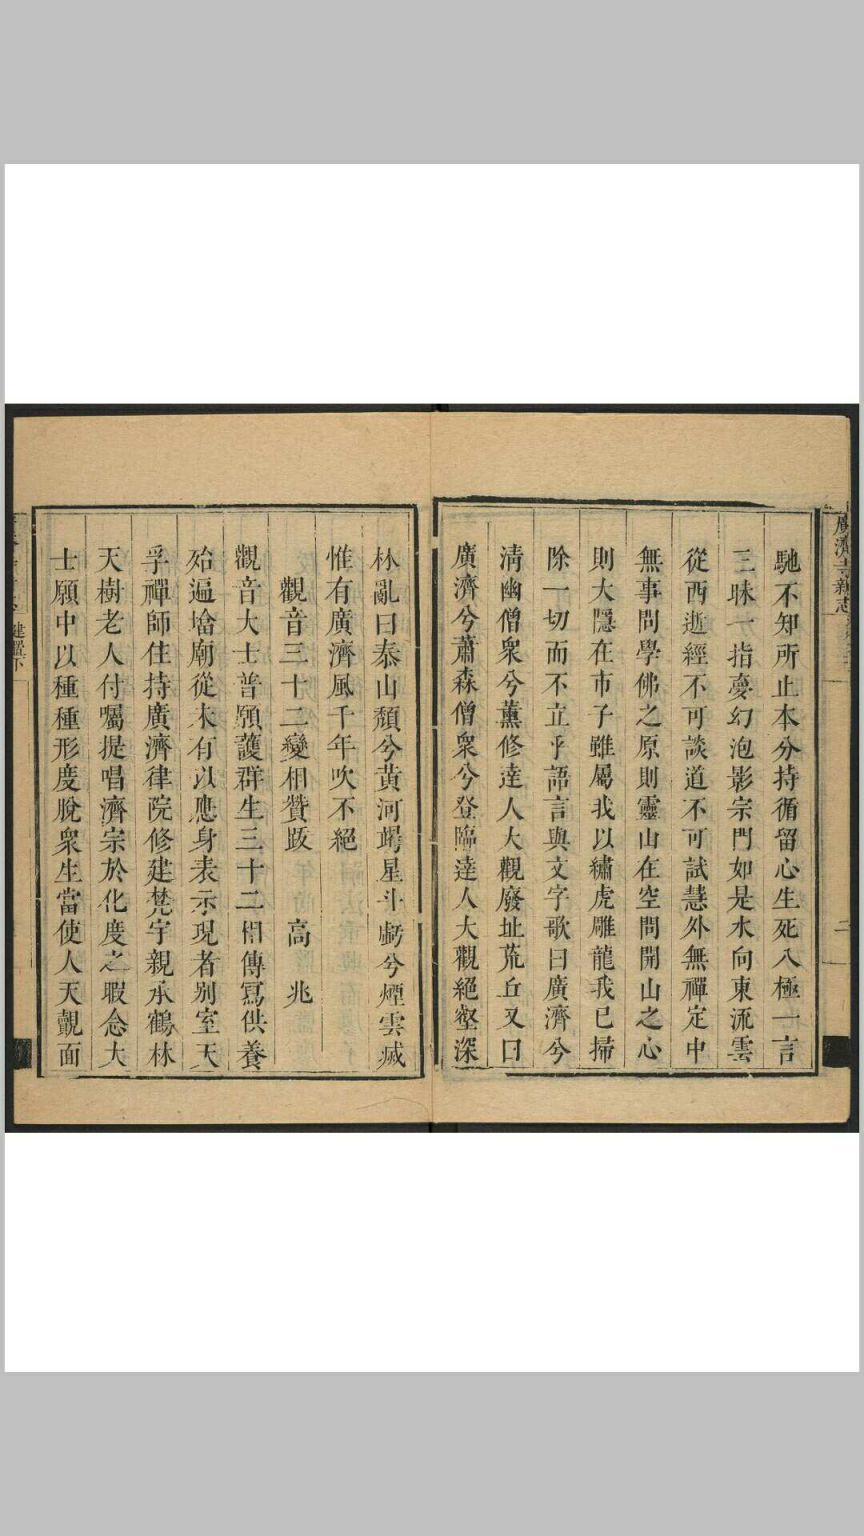 馳不知所止本分持循留心生死八極一言
三昧一指夢幻泡影宗門如是水向東流雲
從西逝經不可談道不可試慧外無禪定中
無事問學佛之原則靈山在空問開山之心
則大隱在市子雖屬我以繡虎雕龍我已掃
除一切而不立乎語言與文字歌曰廣濟兮
清幽僧衆兮薰修達人大觀廢址荒丘又曰
廣濟兮蕭森僧衆兮登臨達人大觀絕壑深
林亂曰泰山頹兮黃河竭星斗虧兮煙雲滅
惟有廣濟風千年吹不絕
觀音三十二變相贊跋 高 兆
觀音大士普願護群生三十二相傳寫供養
殆遍墖廟從未有以應身表示現者别室天
孚禪師住持廣濟律院修建梵宇親承鶴林
天樹老人付囑提唱濟宗於化度之暇念大
士願中以種種形度脫衆生當使人天覿面
建置下